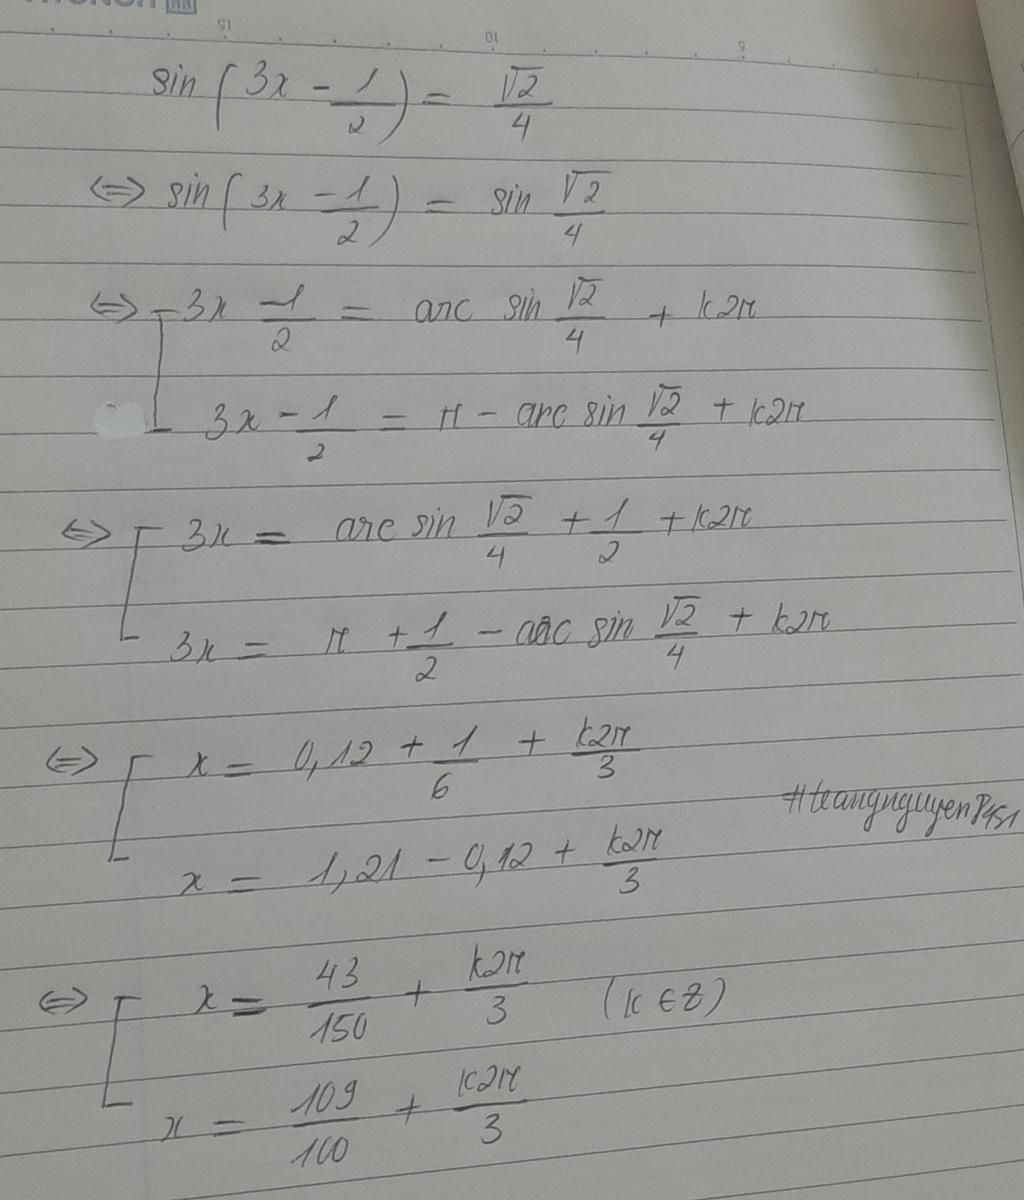 15 10 5
sin(3x - 1/2) = √2/4
⇔ sin(3x - 1/2) = sin √2/4
⇔ [ 3x - 1/2 = arc sin √2/4 + k2π
3x - 1/2 = π - arc sin √2/4 + k2π
⇔ [ 3x = arc sin √2/4 + 1/2 + k2π
3x = π + 1/2 - arc sin √2/4 + k2π
⇔ [ x = 0,12 + 1/6 + k2π/3
x = 1,21 - 0,12 + k2π/3
⇔ [ x = 43/150 + k2π/3 (k ∈ Z)
x = 109/100 + k2π/3